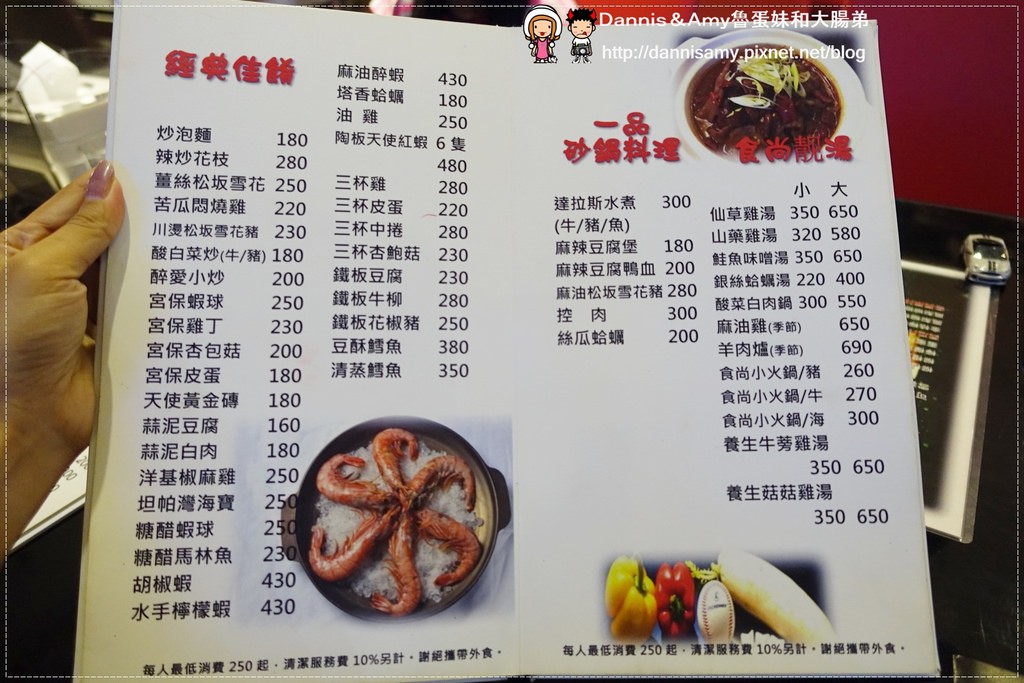 Dannis＆Amy魯蛋妹和大腸弟
http://dannisamy.pixnet.net/blog
經典佳餚
炒泡麵 180
辣炒花枝 280
薑絲松坂雪花 250
苦瓜悶燒雞 220
川燙松坂雪花豬 230
酸白菜炒(牛/豬) 180
醉愛小炒 200
宮保蝦球 250
宮保雞丁 230
宮保杏包菇 200
宮保皮蛋 180
天使黃金磚 180
蒜泥豆腐 160
蒜泥白肉 180
洋基椒麻雞 250
坦帕灣海寶 250
糖醋蝦球 250
糖醋馬林魚 230
胡椒蝦 430
水手檸檬蝦 430
麻油醉蝦 430
塔香蛤蠣 180
油 雞 250
陶板天使紅蝦 6 隻
480
三杯雞 280
三杯皮蛋 220
三杯中捲 280
三杯杏鮑菇 230
鐵板豆腐 230
鐵板牛柳 280
鐵板花椒豬 250
豆酥鱈魚 380
清蒸鱈魚 350
每人最低消費 250 起．清潔服務費 10%另計。謝絕攜帶外食。
一品
砂鍋料理
達拉斯水煮 300
(牛/豬/魚)
麻辣豆腐堡 180
麻辣豆腐鴨血 200
麻油松坂雪花豬 280
控 肉 300
絲瓜蛤蠣 200
食尚靚湯
小 大
仙草雞湯 350 650
山藥雞湯 320 580
鮭魚味噌湯 350 650
銀絲蛤蠣湯 220 400
酸菜白肉鍋 300 550
麻油雞(季節) 650
羊肉爐(季節) 690
食尚小火鍋/豬 260
食尚小火鍋/牛 270
食尚小火鍋/海 300
養生牛蒡雞湯
350 650
養生菇菇雞湯
350 650
每人最低消費 250 起．清潔服務費 10%另計。謝絕攜帶外食。